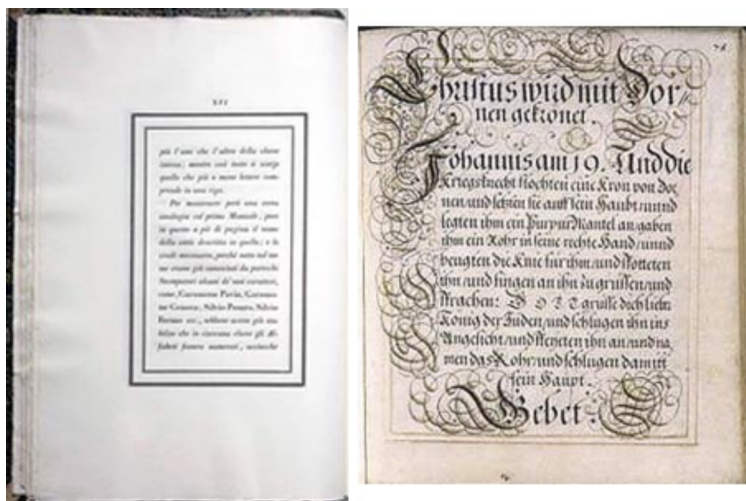 XIV
più l'uno che l'altro della classe
intesa; mentre così tosto si scorge
quello che più o meno lettere com-
prende in una riga.
Per mantenere però una certa
analogia col primo Manuale, pure
in questo a piè di pagina il nome
della città descritta in quello; e lo
credo necessario, perchè sotto tal no-
me erano già conosciuti da parecchi
Stampatori alcuni de' miei caratteri,
come, Garamone Pavia, Garamo-
ne Genova, Silvio Pesaro, Silvio
Fermo ecc., sebbene avessi già sta-
bilito che in ciascuna classe gli Al-
fabeti fossero numerati, acciocchè
Christus wird mit Dor-
nen gekrönet.
Johannis am 19. Und die
Kriegsknecht flochten eine Kron von Dor
nen/und setzten sie auff sein Haubt/unnd
legten ihm ein PurpurMantel an/gaben
ihm ein Rohr in seine rechte Hand/unnd
beugten die Knie für ihm/und spotteten
ihn/und fingen an ihn zu grüssen/und
sprachen: GOTT grüsse dich lieber
König der Juden/und schlugen ihn ins
Angesicht/und speyeten ihn an/und na
men das Rohr/und schlugen damit
sein Haupt.
Gebet.